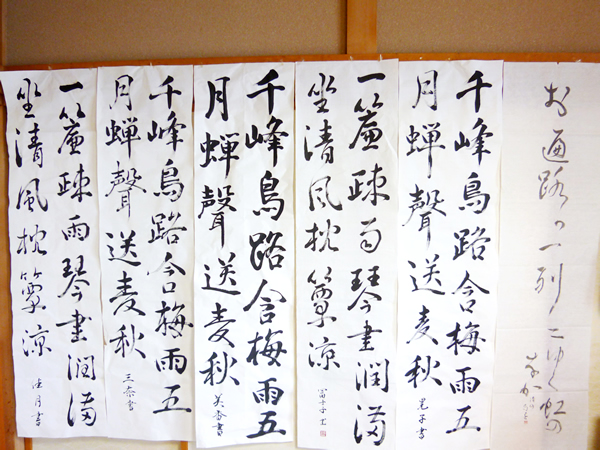 お遍路の一列にゆく虹の
なか
千峰鳥路含梅雨五
月蝉聲送麦秋
書
一簾疎雨琴書潤満
坐清風枕簟涼
千峰鳥路含梅雨五
月蝉聲送麦秋
美香書
千峰鳥路含梅雨五
月蝉聲送麦秋
三奈書
一簾疎雨琴書潤満
坐清風枕簟涼
月書